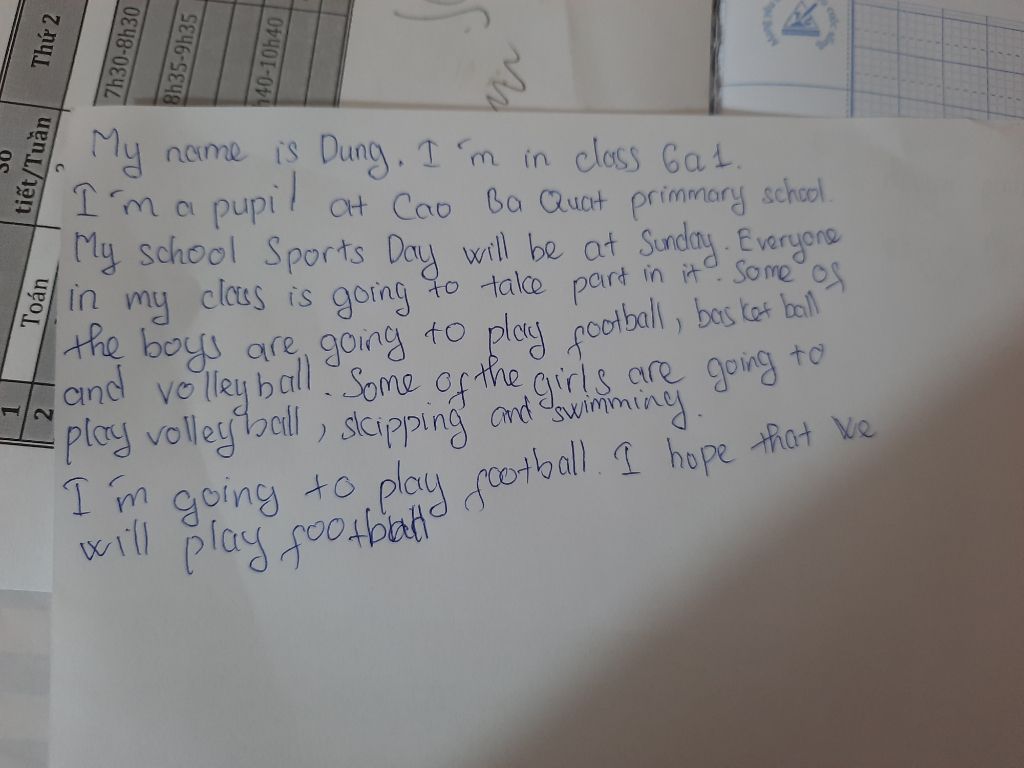 Thứ 2
7h30-8h30
8h35-9h35
h40-10h40
số
tiết/Tuần
Toán
1
2
My name is Dung. I'm in class 6a1.
I'm a pupil at Cao Ba Quat primmary school.
My school Sports Day will be at Sunday. Everyone
in my class is going to take part in it. Some of
the boys are going to play football, basket ball
and volleyball. Some of the girls are going to
play volleyball, skipping and swimming.
I'm going to play football. I hope that we
will play football